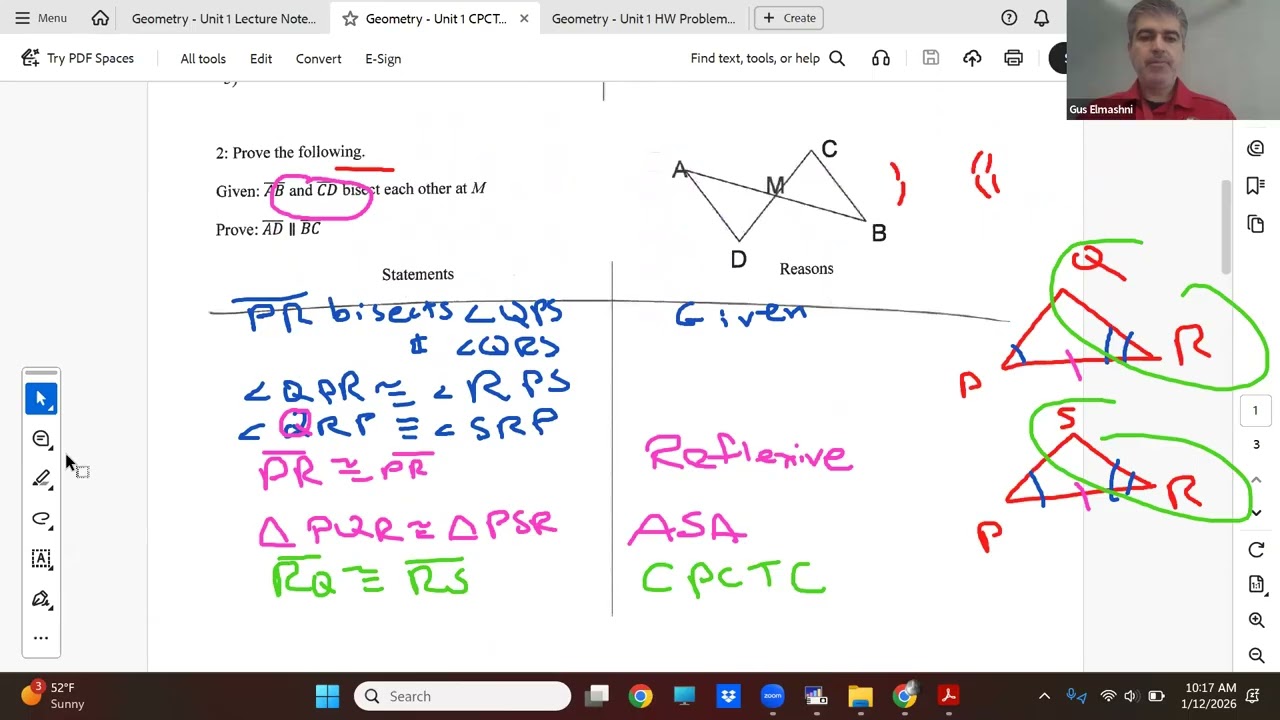 Menu
Geometry - Unit 1 Lecture Note...
Geometry - Unit 1 CPCT...
Geometry - Unit 1 HW Problem...
Create
Try PDF Spaces
All tools
Edit
Convert
E-Sign
Find text, tools, or help
Gus Elmashni
2: Prove the following.
Given: AB and CD bisect each other at M
Prove: AD ∥ BC
A
C
M
B
D
Statements
Reasons
PR bisects ∠QPS
Given
& ∠QRS
∠QPR ≅ ∠RPS
∠QRP ≅ ∠SRP
PR ≅ PR
Reflexive
△PQR ≅ △PSR
ASA
RQ ≅ RS
CPCTC
Q
R
P
S
R
P
1
3
3
52°F
Sunny
Search
zoom
10:17 AM
1/12/2026